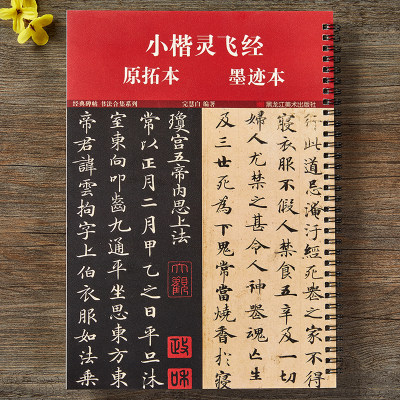 小楷灵飞经
原拓本 墨迹本
经典碑帖 书法合集系列 完慧白 编著 黑龙江美术出版社
瓊宫五帝内思上法
常以正月二月甲乙之日平旦沐
室東向叩齒九通平坐思東方東
帝君諱雲拘字上伯衣服如法乘
大觀
政和
行此道忌淹汙經死喪之家不得
寢衣服不假人禁食五辛及一切
婦人尤禁之甚令人神喪魂亡生
及三世死為下鬼常當燒香於寢